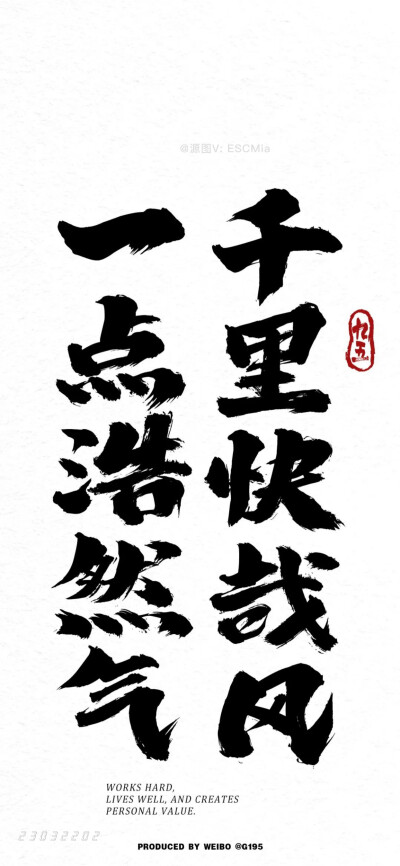 @源图V: ESCMia
一点浩然气
千里快哉风
九五
WORKS HARD,
LIVES WELL, AND CREATES
PERSONAL VALUE.
23032202
PRODUCED BY WEIBO @G195